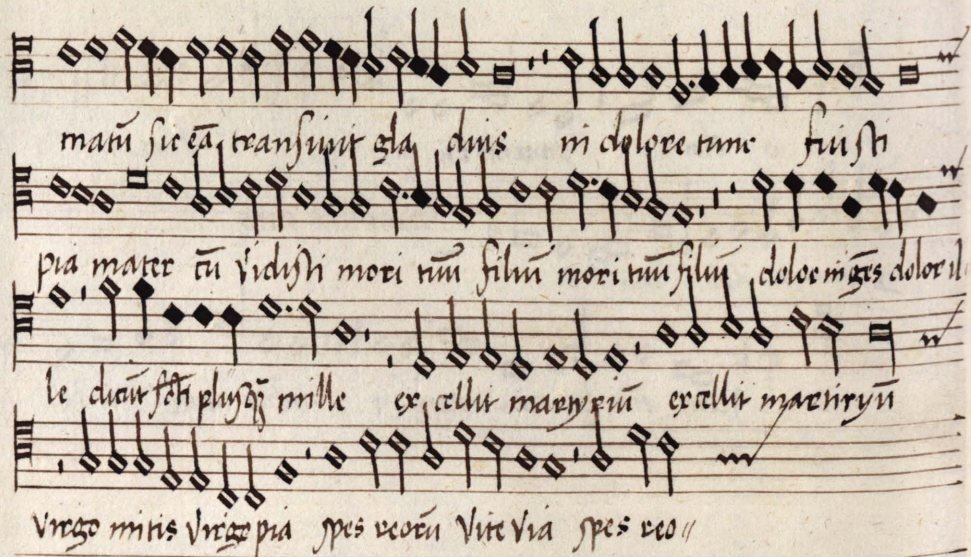 matū sic eā transivit gla dius in dolore tunc fuisti
pia mater cū vidisti mori tuū filiū mori tuū filiū dolor ingēs dolor il
le dicūt scti plusq̄ mille excellit martyriū excellit martiryū
virgo mitis virgo pia spes reorū vite via spes reo